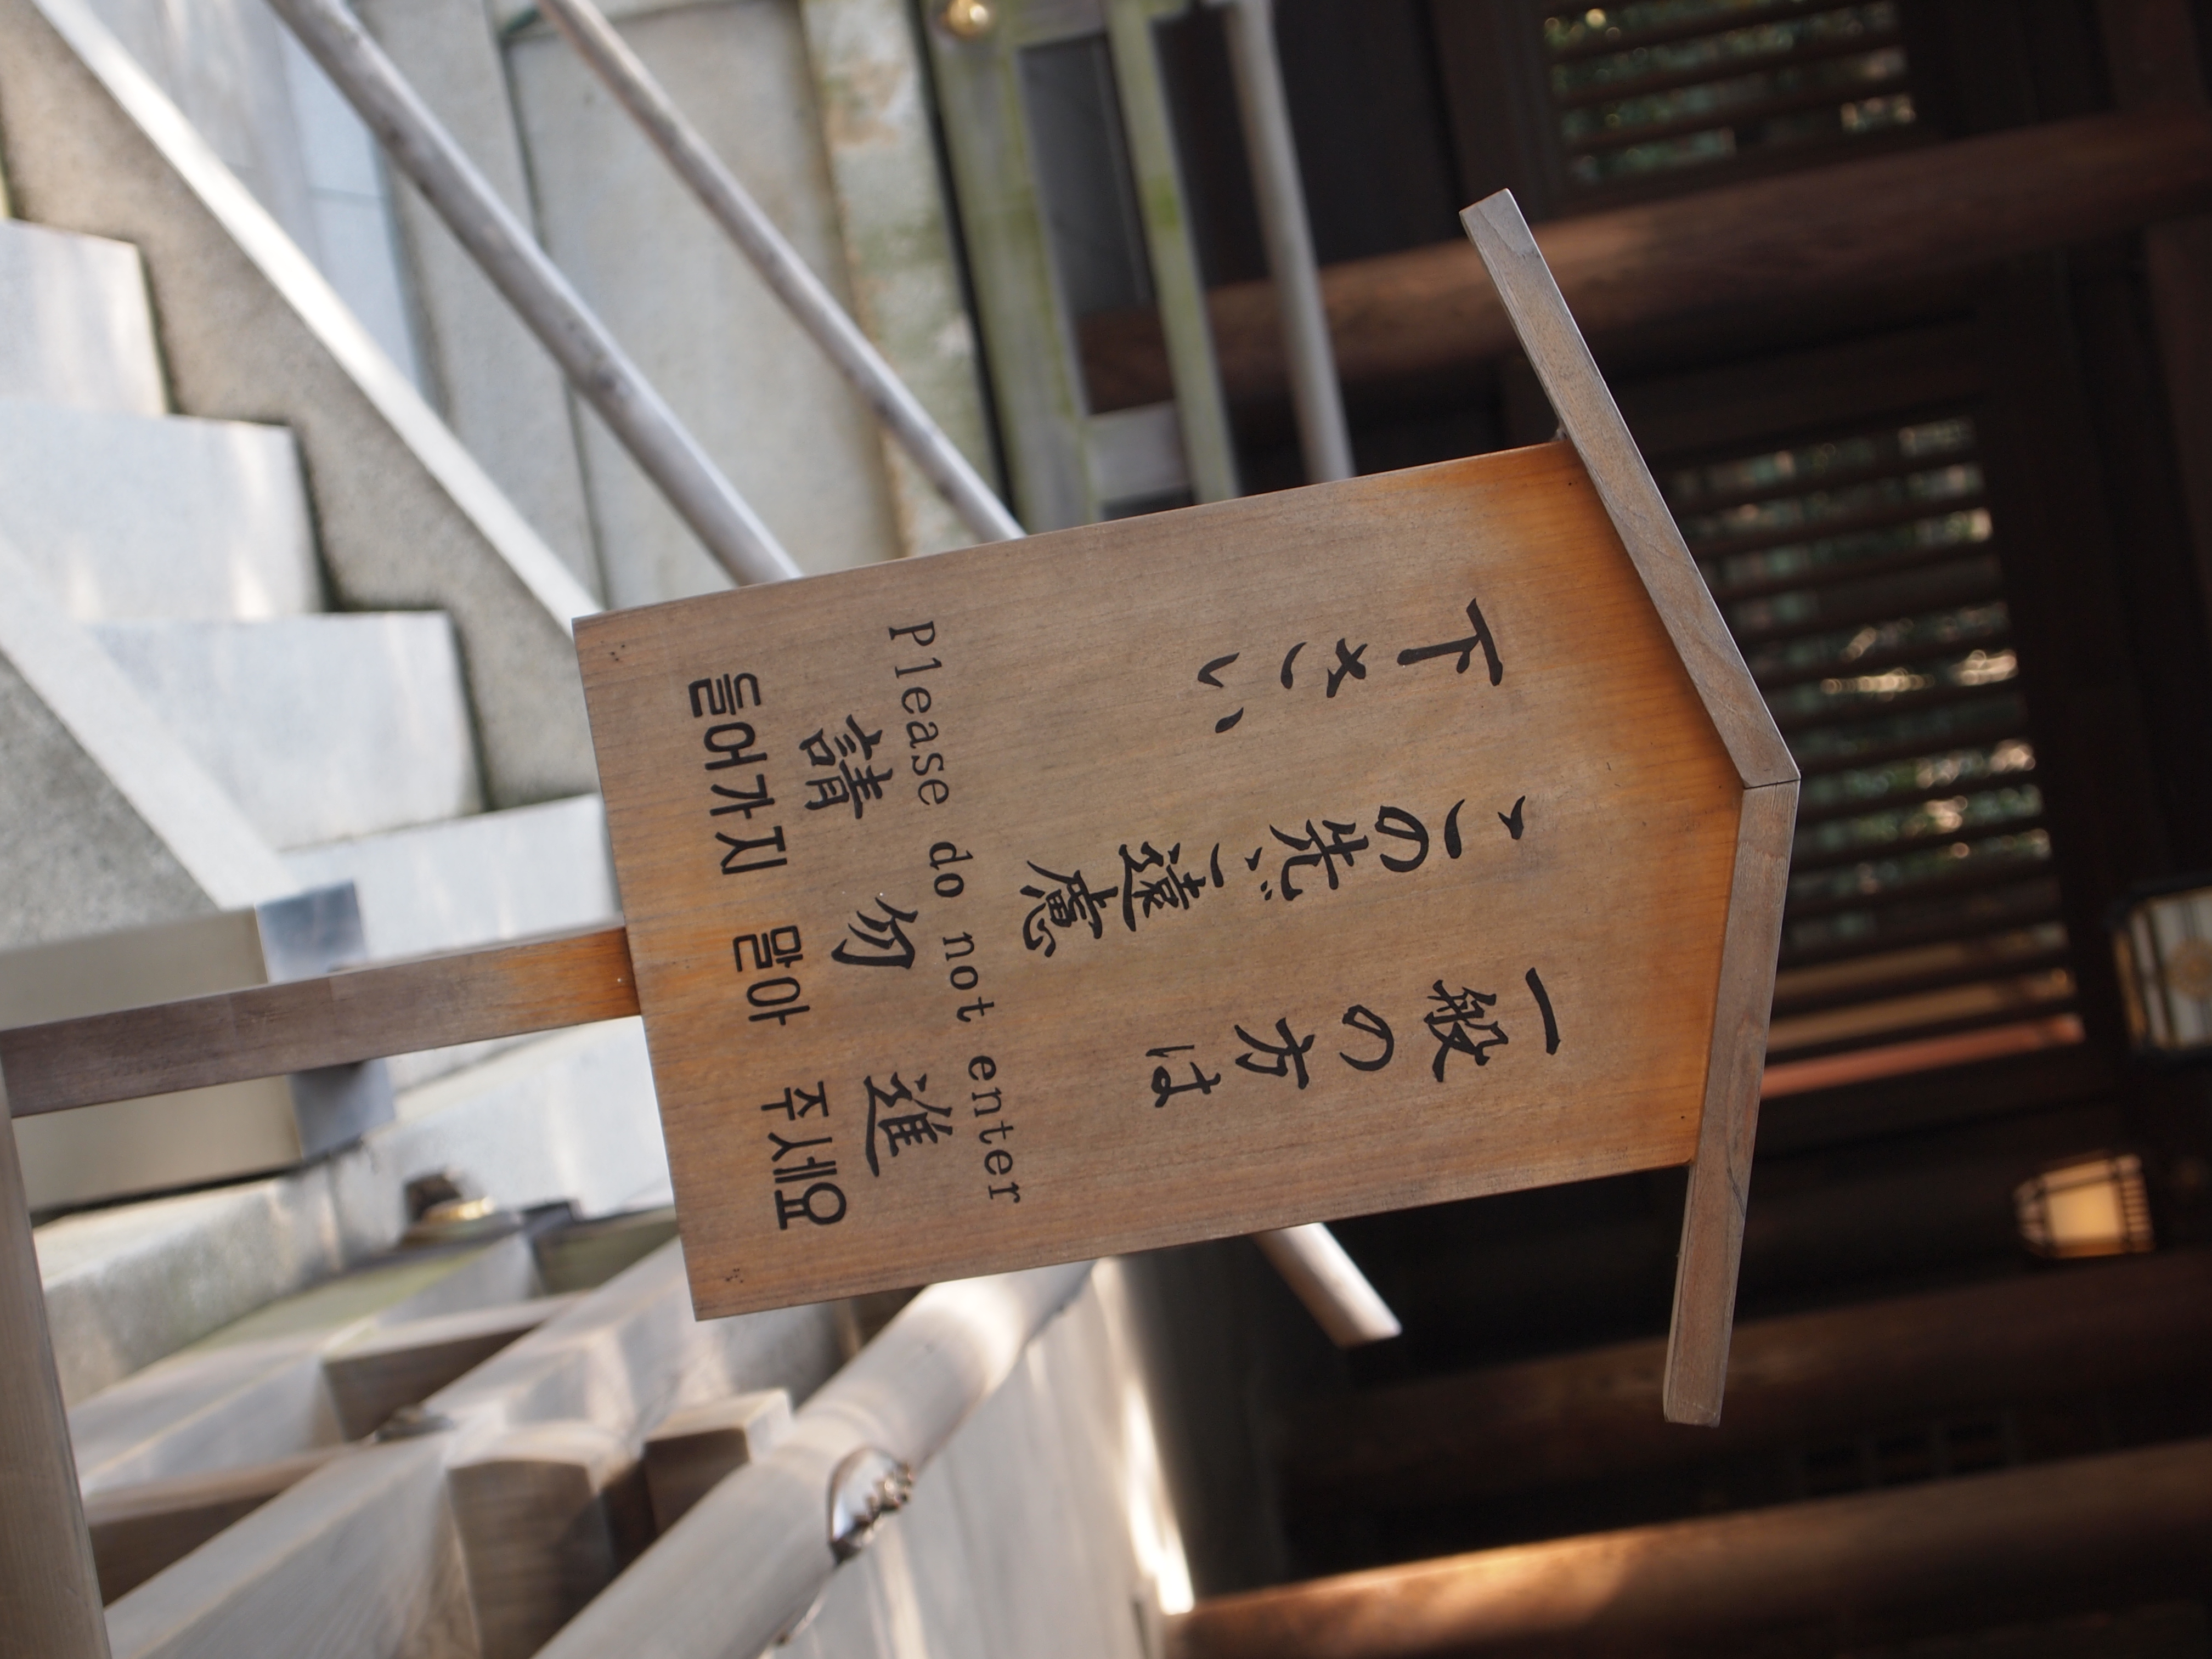 一般の方は
この先ご遠慮
下さい
Please do not enter
請 勿 進
들어가지 말아 주세요